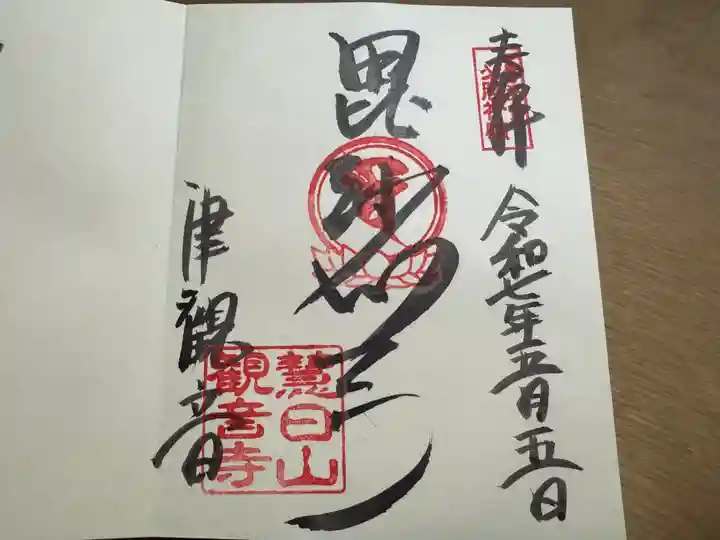 奉拝
令和七年五月五日
毘沙門天
津観音
慧日山
觀音寺